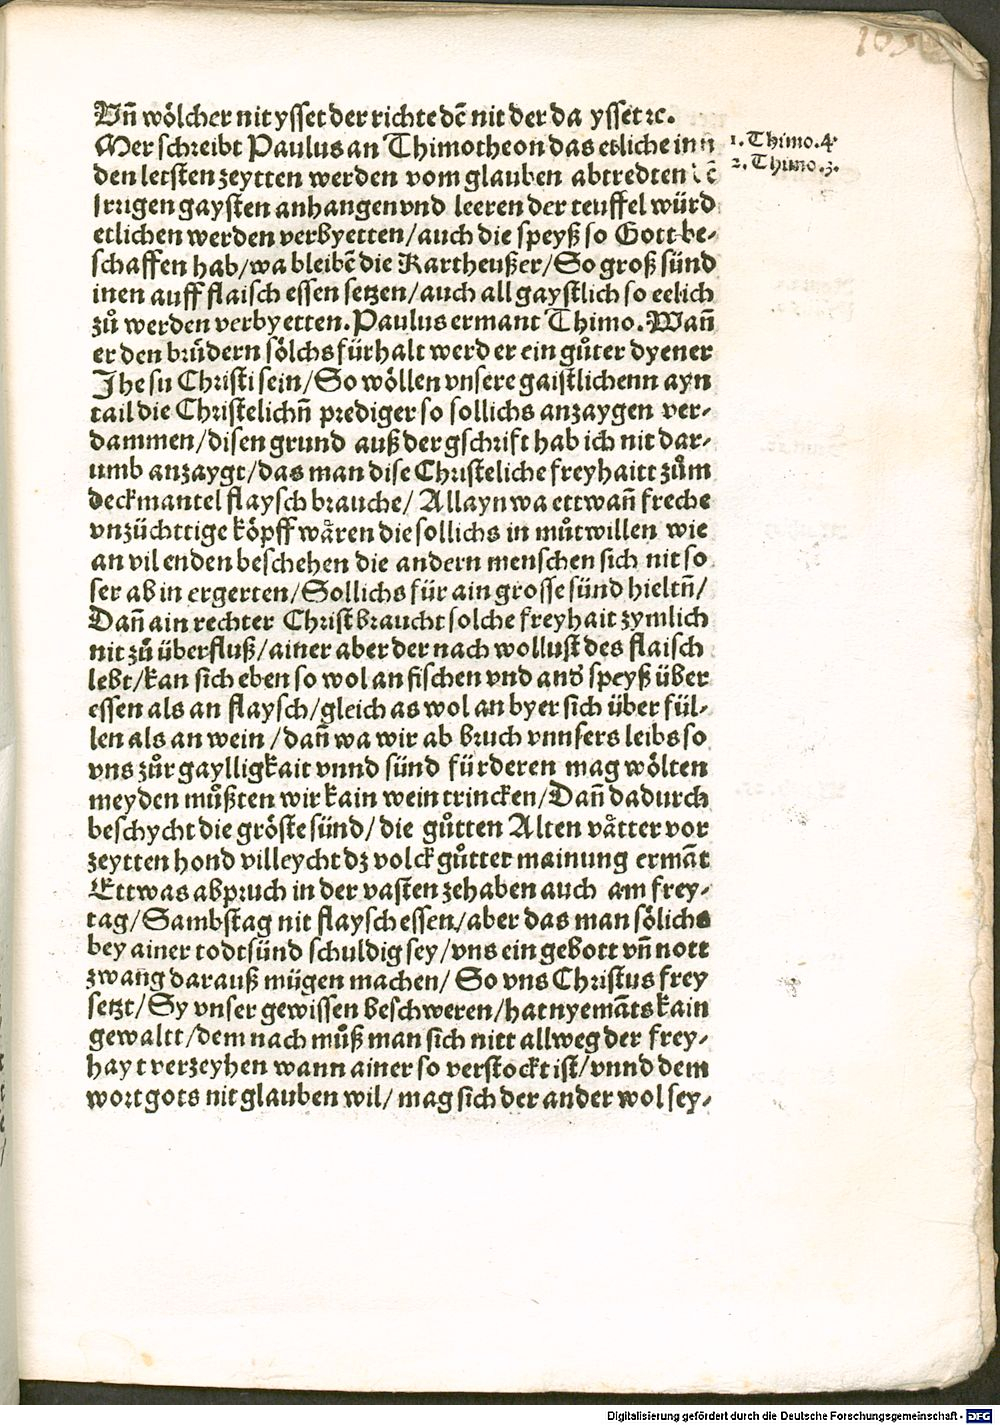 103
Vñ wölcher nit ysset der richte dē nit der da ysset ꝛc.
Mer schreibt Paulus an Thimotheon das etliche inn
1. Thimo. 4.
2. Thimo. 3.
den letsten zeytten werden vom glauben abtredten
jrrigen gaysten anhangen vnd leeren der teuffel würd
etlichen werden verbyetten/auch die speyß so Gott be-
schaffen hab/wa bleibē die Kartheußer/So groß sünd
inen auff flaisch essen setzen/auch all gaystlich so eelich
zů werden verbyetten. Paulus ermant Thimo. Wañ
er den brüdern sölchs fürhalt werd er ein gůter dyener
Jhesu Christi sein/So wöllen vnsere gaistlichenn ayn
tail die Christelichñ prediger so sollichs anzaygen ver-
dammen/disen grund auß der gschrift hab ich nit dar-
umb anzaygt/das man dise Christeliche freyhaitt zům
deckmantel flaysch brauche/ Allayn wa ettwañ freche
vnzüchttige köpff wåren die sollichs in můtwillen wie
an vil enden beschehen die andern menschen sich nit so
ser ab in ergerten/Sollichs für ain grosse sünd hieltñ/
Dañ ain rechter Christ braucht solche freyhait zymlich
nit zů überfluß/ainer aber der nach wollust des flaisch
lebt/kan sich eben so wol an fischen vnd and̕ speyß über
essen als an flaysch/gleich as wol an byer sich über fül-
len als an wein/dañ wa wir ab bruch vnnsers leibs so
vns zůr gaylligkait vnnd sünd fürderen mag wölten
meyden můßten wir kain wein trincken/Dañ dadurch
beschycht die gröste sünd/die gůtten Alten våtter vor
zeytten hond villeycht dz volck gůtter mainung ermāt
Ettwas abpruch in der vasten zehaben auch am frey-
tag/Sambstag nit flaysch essen/aber das man sölichs
bey ainer todtsünd schuldig sey/vns ein gebott vñ nott
zwang darauß mügen machen/ So vns Christus frey
setzt/Sy vnser gewissen beschweren/hat nyemāts kain
gewaltt/dem nach můß man sich nitt allweg der frey-
hayt verzeyhen wann ainer so verstockt ist/vnnd dem
wort gots nit glauben wil/mag sich der ander wol sey-
Digitalisierung gefördert durch die Deutsche Forschungsgemeinschaft - DFG